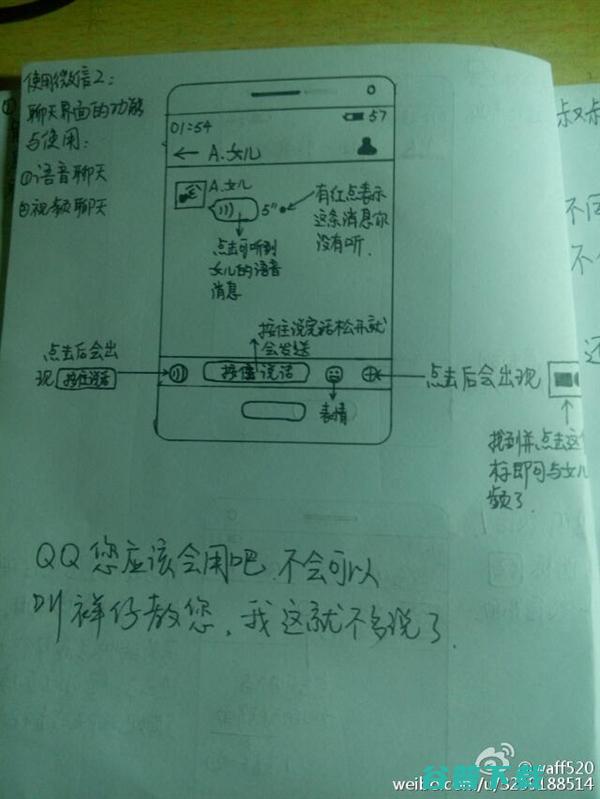 使用微信2:
聊天界面的功能
与使用:
①语音聊天
②视频聊天
01:54
57
← A.女儿
A.女儿
5"
有红点表示
这条消息你
没有听.
点击可听到
女儿的语音
消息
按住说完话松开就
会发送
点击后会出
现 按住说话
按住说话
表情
点击后会出现
找到并点击这
标即可与女儿
频了.
QQ您应该会用吧.不会可以
叫祥仔教您,我这就不多说了.
叔叔
不
不
还
@waff520
weibo.com/u/3293188514